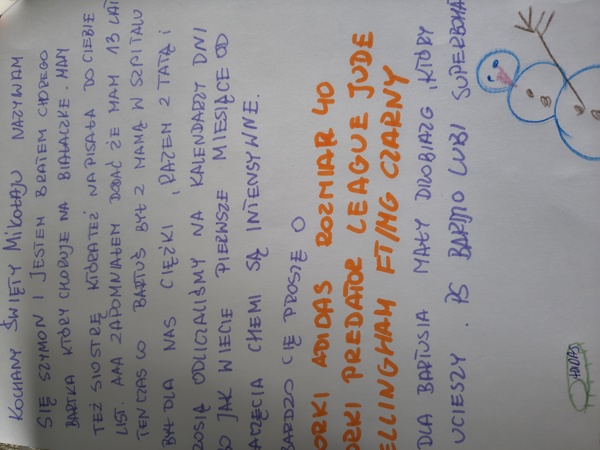 KOCHANY ŚWIĘTY MIKOŁAJU NAZYWAM
SIĘ SZYMON I JESTEM BRATEM CHOREGO
BARTKA KTÓRY CHORUJE NA BIAŁACZKE. MAM
TEŻ SIOSTRĘ KTÓRA TEŻ NAPISAŁA DO CIEBIE
LIST. AAA ZAPOMNIAŁEM DODAĆ ŻE MAM 13 LAT
TEN CZAS CO BARTUŚ BYŁ Z MAMĄ W SZPITALU
BYŁ DLA NAS CIĘŻKI, RAZEM Z TATĄ I
ZOSIĄ ODLICZALIŚMY NA KALENDARZY DNI
BO JAK WIECIE PIERWSZE MIESIĄCE OD
ZACZĘCIA CHEMI SĄ INTENSYWNE.
BARDZO CIĘ PROSZĘ O
ORKI ADIDAS ROZMIAR 40
ORKI PREDATOR LEAGUE JUDE
ELLINGHAM FT/MG CZARNY
DLA BARTUSIA MAŁY DROBIAZG, KTÓRY
UCIESZY. PS BARDZO LUBI SUPERBOHA